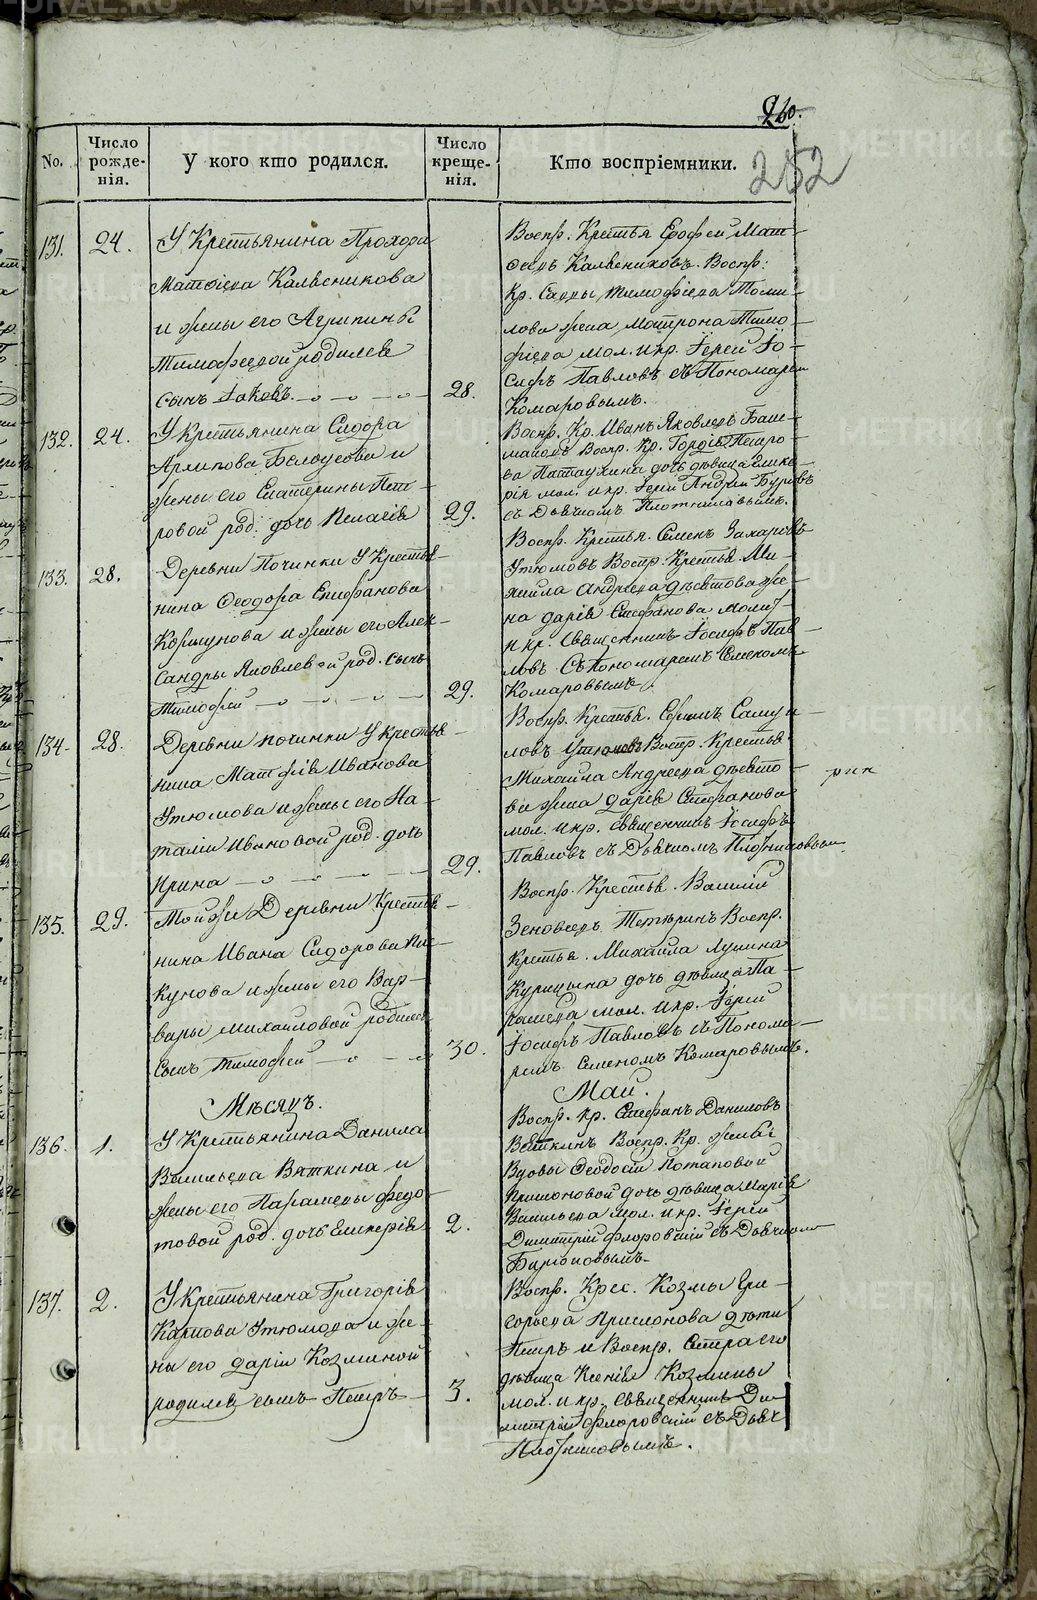 260.
252
No.
Число рожде-нія.
У кого кто родился.
Число креще-нія.
Кто воспріемники.
131. 24.
У Крестьянина Прохора
Матвіева Калесникова
и жены его Агрипины
Тимофеевой родился
сынъ Іаковъ 28.
Воспр. Крестья Ерофей Мат-
веевъ Калесниковъ. Воспр:
Кр. Саввы Тимофіева Томи-
лова жена Матрона Тимо-
фіева мол. и кр. Іерей Іо-
сифъ Павловъ съ Пономарем
Комаровымъ.
132. 24.
У Крестьянина Сидора
Архипова Белоусова и
жены его Екатерины Пет-
ровой род. дочь Пелагія 29.
Воспр. Кр. Иванъ Яковлевъ Баш-
маковъ Воспр. Кр. Гордія Петро-
ва Патаухина дочь дѣвица Глике-
рія мол. и кр. Іерей Андрей Буровъ
съ Дьячкомъ Плотниковымъ.
133. 28.
Деревни Починки У Крестья-
нина Феодора Епифанова
Коршунова и жены его Алек-
сандры Яковлевой род. сынъ
Тимофей 29.
Воспр. Крестья. Семенъ Захаровъ
Утюмовъ Воспр. Крестья. Ми-
хаила Андреева Дѣевтова же-
на Дарія Стефанова молит.
и кр. Священникъ Іосифъ Пав-
ловъ Съ пономаремъ Семеномъ
Комаровымъ
134. 28.
Деревни починки У крестья-
нина Матфія Иванова
Утюмова и жены его На-
таліи Ивановой род. дочь
Ирина 29.
Воспр. Крестья. Ефимъ Самуи-
ловъ Утюмовъ Воспр. Крестья
Михаила Андреева Дѣевто-
ва жена Дарія Стефанова
мол. и кр. Священникъ Іосифъ
Павловъ съ Дьячкомъ Плотниковым.
135. 29.
Той же Деревни Крестья-
нина Ивана Сидорова Пи-
кунова и жены его Вар-
вары Михаиловой родился
Сынъ Тимофей 30.
Воспр. Крестья. Василій
Зеновеевъ Тетеринъ Воспр.
Крестья. Михаила Лукина
Курицына дочь дѣвица Па-
раскева мол. и кр. Іерей
Іосифъ Павловъ съ Понома-
ремъ Семеномъ Комаровымъ.
Мѣсяцъ. Май.
136. 1.
У Крестьянина Данила
Васильева Вяткина и
жены его Параскевы Федо-
товой род. дочь Гликерія 2.
Воспр. кр. Стефанъ Даниловъ
Вяткинъ Воспр. Кр. жены
Вдовы Феодосіи Потаповой
Прислоновой дочь дѣвица Марія
Васильева мол. и кр. Іерей
Димитрій Флоровскій съ Дьячкомъ
137. 2.
У Крестьянина Григорія
Карпова Утюмова и же-
ны его Даріи Козминой
родился сынъ Петръ 3.
Воспр. Крес. Козмы Гри-
горьева Прислонова дѣти
Петръ и Воспр. Сестра его
дѣвица Ксенія Козмины
мол. и кр. Священникъ Ди-
митрій Флоровскій съ Дьяч.
Плотниковымъ.